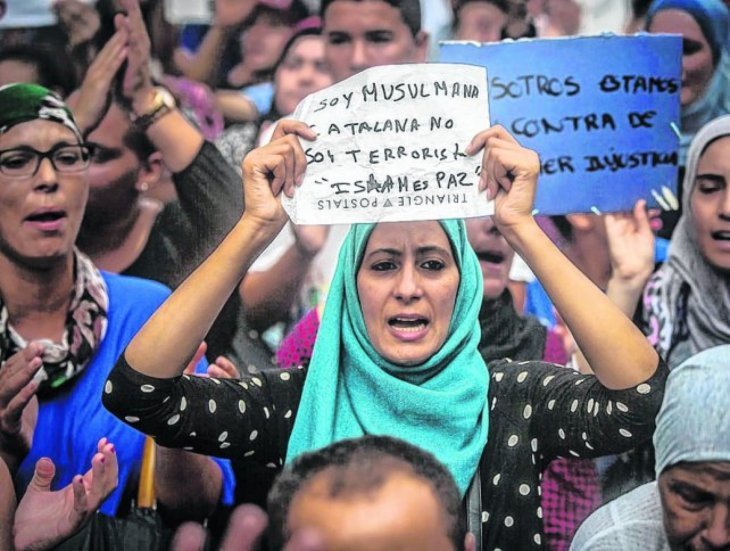 SOY MUSULMANA
CATALANA NO
SOY TERRORISTA
"ISLAM ES PAZ"
TRIANGLE POSTALS
OSOTROS ESTAMOS
CONTRA DE